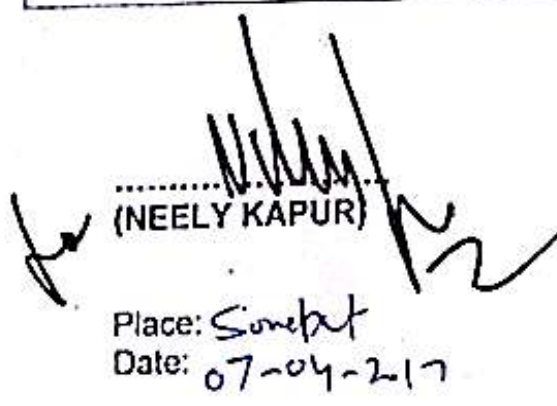 (NEELY KAPUR)
Place: Sonebt
Date: 07-04-217